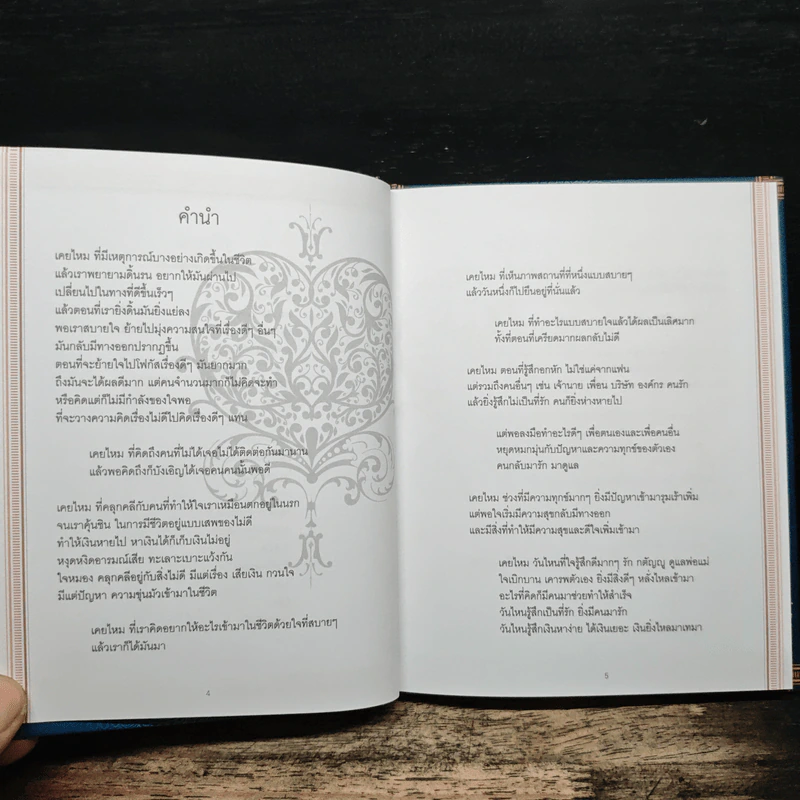 คำนำ
เคยไหม ที่มีเหตุการณ์บางอย่างเกิดขึ้นในชีวิต
แล้วเราพยายามดิ้นรน อยากให้มันผ่านไป
เปลี่ยนไปในทางที่ดีขึ้นเร็วๆ
แล้วตอนที่เรายิ่งดิ้นมันยิ่งแย่ลง
พอเราสบายใจ ย้ายไปมุ่งความสนใจที่เรื่องดีๆ อื่นๆ
มันกลับมีทางออกปรากฏขึ้น
ตอนที่จะย้ายใจไปโฟกัสเรื่องดีๆ มันยากมาก
ถึงมันจะได้ผลดีมาก แต่คนจำนวนมากก็ไม่คิดจะทำ
หรือคิดแต่ก็ไม่มีกำลังของใจพอ
ที่จะวางความคิดเรื่องไม่ดีไปคิดเรื่องดีๆ แทน
เคยไหม ที่คิดถึงคนที่ไม่ได้เจอไม่ได้ติดต่อกันมานาน
แล้วพอคิดถึงก็บังเอิญได้เจอคนคนนั้นพอดี
เคยไหม ที่คลุกคลีกับคนที่ทำให้ใจเราเหมือนตกอยู่ในนรก
จนเราคุ้นชิน ในการมีชีวิตอยู่แบบเสพของไม่ดี
ทำให้เงินหายไป หาเงินได้ก็เก็บเงินไม่อยู่
หงุดหงิดอารมณ์เสีย ทะเลาะเบาะแว้งกัน
ใจหมอง คลุกคลีอยู่กับสิ่งไม่ดี มีแต่เรื่อง เสียเงิน กวนใจ
มีแต่ปัญหา ความขุ่นมัวเข้ามาในชีวิต
เคยไหม ที่เราคิดอยากให้อะไรเข้ามาในชีวิตด้วยใจที่สบายๆ
แล้วเราก็ได้มันมา
4
เคยไหม ที่เห็นภาพสถานที่ที่หนึ่งแบบสบายๆ
แล้ววันหนึ่งก็ไปยืนอยู่ที่นั่นแล้ว
เคยไหม ที่ทำอะไรแบบสบายใจแล้วได้ผลเป็นเลิศมาก
ทั้งที่ตอนที่เครียดมากผลกลับไม่ดี
เคยไหม ตอนที่รู้สึกอกหัก ไม่ใช่แค่จากแฟน
แต่รวมถึงคนอื่นๆ เช่น เจ้านาย เพื่อน บริษัท องค์กร คนรัก
แล้วยิ่งรู้สึกไม่เป็นที่รัก คนก็ยิ่งห่างหายไป
แต่พอลงมือทำอะไรดีๆ เพื่อตนเองและเพื่อคนอื่น
หยุดหมกมุ่นกับปัญหาและความทุกข์ของตัวเอง
คนกลับมารัก มาดูแล
เคยไหม ช่วงที่มีความทุกข์มากๆ ยิ่งมีปัญหาเข้ามารุมเร้าเพิ่ม
แต่พอใจเริ่มมีความสุขกลับมีทางออก
และมีสิ่งที่ทำให้มีความสุขและดีใจเพิ่มเข้ามา
เคยไหม วันไหนที่ใจรู้สึกดีมากๆ รัก กตัญญู ดูแลพ่อแม่
ใจเบิกบาน เคารพตัวเอง ยิ่งมีสิ่งดีๆ หลั่งไหลเข้ามา
อะไรที่คิดก็มีคนมาช่วยทำให้สำเร็จ
วันไหนรู้สึกเป็นที่รัก ยิ่งมีคนมารัก
วันไหนรู้สึกเงินหาง่าย ได้เงินเยอะ เงินยิ่งไหลมาเทมา
5